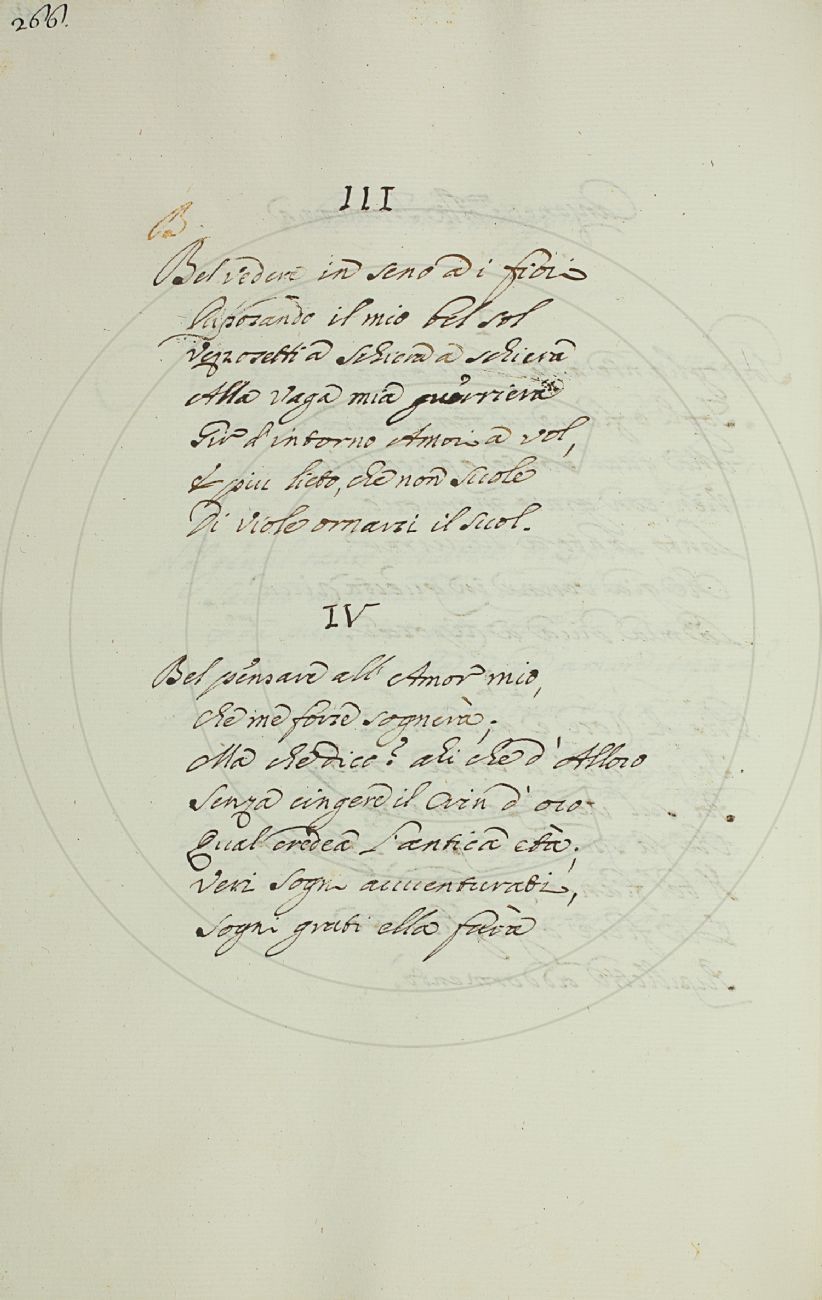 266.
III
B
Bel vedere in seno a i fiori
Riposando il mio bel sol
Vezzosetti a schiera a schiera
Alla vaga mia guerriera
Gir d'intorno Amori a vol,
E piu lieto, che non suole
Di viole ornarsi il suol.
IV
Bel pensare all' Amor mio,
Che me forse sognerà;
Ma che dico? ahi che d'Alloro
Senza cingere il Crin d'oro
Qual credea l'antica età;
Veri sogni avventurati,
Sogni grati ella farà